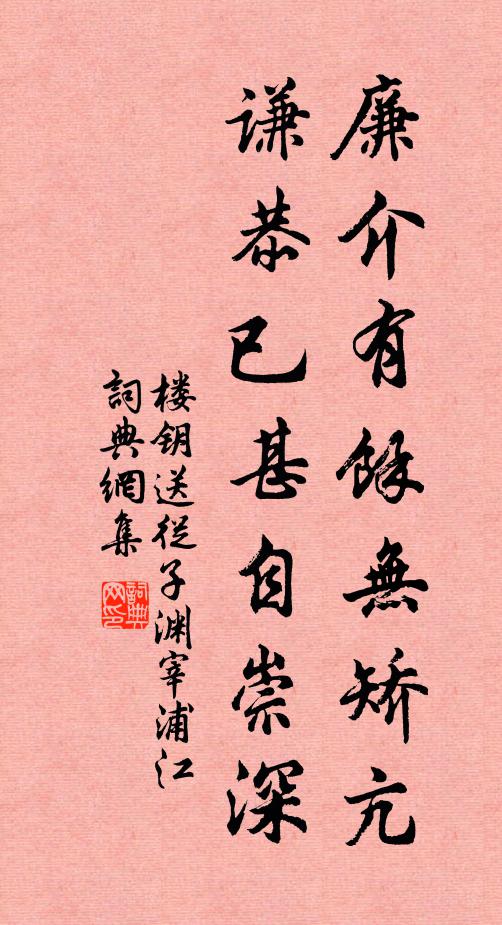 廉介有餘無矯亢
謙恭已甚自崇深
楼钥送從子渊宰浦江
詞典網集
詞典网印